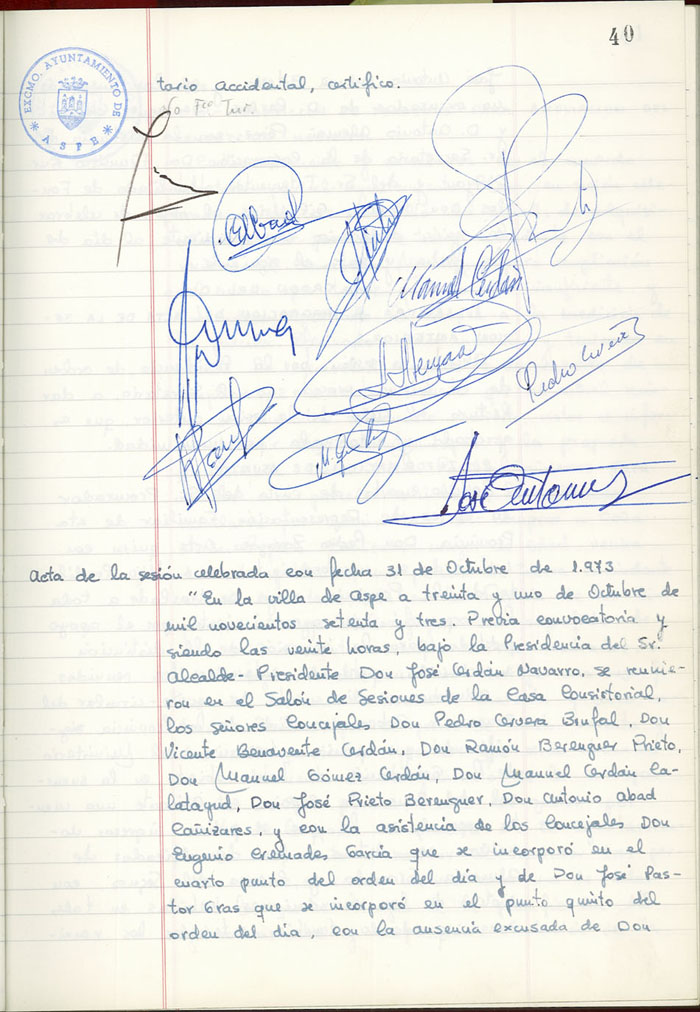 40
EXCMO. AYUNTAMIENTO DE
* ASPE *
tario accidental, certifico.
Abad
Manuel Cerdán
Pedro Cervera
José Antonio
Acta de la sesión celebrada con fecha 31 de Octubre de 1.973
"En la villa de Aspe a treinta y uno de Octubre de
mil novecientos setenta y tres. Previa convocatoria y
siendo las veinte horas, bajo la Presidencia del Sr.
Alcalde-Presidente Don José Cerdán Navarro, se reunie-
ron en el Salón de Sesiones de la Casa Consistorial,
los señores Concejales Don Pedro Cervera Brufal, Don
Vicente Benavente Cerdán, Don Ramón Berenguer Prieto,
Don Manuel Gómez Cerdán, Don Manuel Cerdán Ca-
latayud, Don José Prieto Berenguer, Don Antonio Abad
Cañizares, y con la asistencia de los Concejales Don
Eugenio Cremades García que se incorporó en el
cuarto punto del orden del día y de Don José Pas-
tor Gras que se incorporó en el punto quinto del
orden del día, con la ausencia excusada de Don